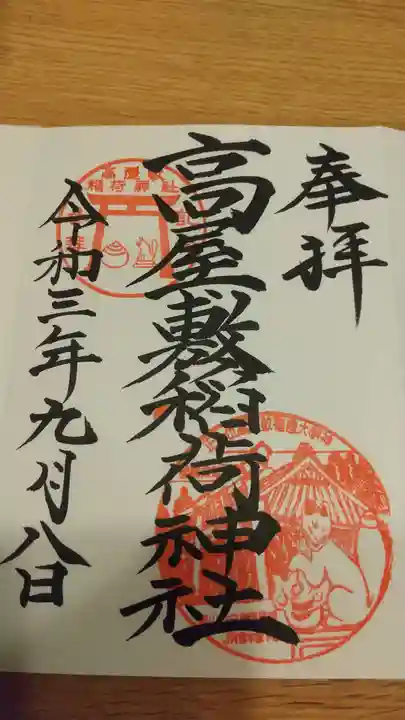 奉拝
高屋敷稲荷神社
令和三年九月八日
稲荷神社